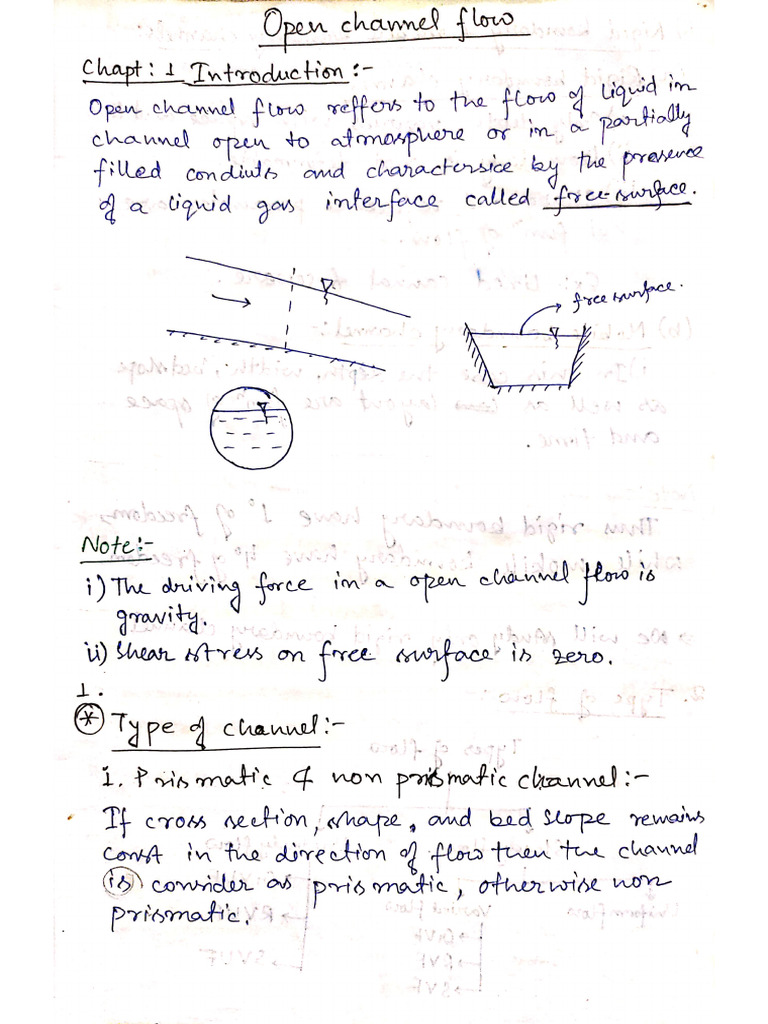 Open channel flow
Chapt: 1 Introduction :-
Open channel flow reffers to the flow of liquid in
channel open to atmosphere or in a partially
filled condiuts and charactersice by the presence
of a liquid gas interface called free-surface.
free surface.
Note:-
i) The driving force in a open channel flow is
gravity.
ii) Shear stress on free surface is zero.
1.
* Type of channel:-
1. Prismatic & non prismatic channel:-
If cross section, shape, and bed slope remains
const in the direction of flow then the channel
is consider as prismatic, otherwise non
prismatic.